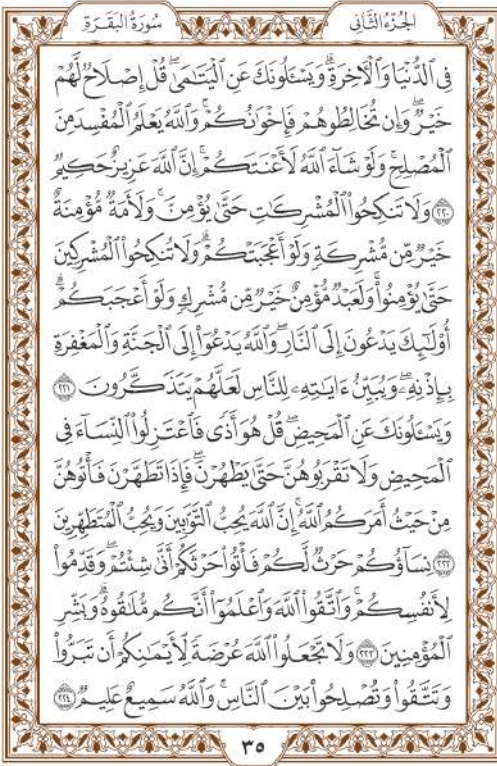 الجُزْءُ الثَّانِي
سُورَةُ البَقَرَةِ
فِى ٱلدُّنْيَا وَٱلْأَخِرَةِۗ وَيَسْـَٔلُونَكَ عَنِ ٱلْيَتَٰمَىٰۖ قُلْ إِصْلَاحٌ لَّهُمْ
خَيْرٌۖ وَإِن تُخَالِطُوهُمْ فَإِخْوَٰنُكُمْۚ وَٱللَّهُ يَعْلَمُ ٱلْمُفْسِدَ مِنَ
ٱلْمُصْلِحِۚ وَلَوْ شَآءَ ٱللَّهُ لَأَعْنَتَكُمْۚ إِنَّ ٱللَّهَ عَزِيزٌ حَكِيمٌ
٢٢٠ وَلَا تَنكِحُوا۟ ٱلْمُشْرِكَٰتِ حَتَّىٰ يُؤْمِنَّۚ وَلَأَمَةٌ مُّؤْمِنَةٌ
خَيْرٌ مِّن مُّشْرِكَةٍ وَلَوْ أَعْجَبَتْكُمْۗ وَلَا تُنكِحُوا۟ ٱلْمُشْرِكِينَ
حَتَّىٰ يُؤْمِنُوا۟ۚ وَلَعَبْدٌ مُّؤْمِنٌ خَيْرٌ مِّن مُّشْرِكٍ وَلَوْ أَعْجَبَكُمْۗ
أُو۟لَٰٓئِكَ يَدْعُونَ إِلَى ٱلنَّارِۖ وَٱللَّهُ يَدْعُوٓا۟ إِلَى ٱلْجَنَّةِ وَٱلْمَغْفِرَةِ
بِإِذْنِهِۦۖ وَيُبَيِّنُ ءَايَٰتِهِۦ لِلنَّاسِ لَعَلَّهُمْ يَتَذَكَّرُونَ ٢٢١
وَيَسْـَٔلُونَكَ عَنِ ٱلْمَحِيضِۖ قُلْ هُوَ أَذًى فَٱعْتَزِلُوا۟ ٱلنِّسَآءَ فِى
ٱلْمَحِيضِ وَلَا تَقْرَبُوهُنَّ حَتَّىٰ يَطْهُرْنَۖ فَإِذَا تَطَهَّرْنَ فَأْتُوهُنَّ
مِنْ حَيْثُ أَمَرَكُمُ ٱللَّهُۚ إِنَّ ٱللَّهَ يُحِبُّ ٱلتَّوَّٰبِينَ وَيُحِبُّ ٱلْمُتَطَهِّرِينَ
٢٢٢ نِسَآؤُكُمْ حَرْثٌ لَّكُمْ فَأْتُوا۟ حَرْثَكُمْ أَنَّىٰ شِئْتُمْۖ وَقَدِّمُوا۟
لِأَنفُسِكُمْۚ وَٱتَّقُوا۟ ٱللَّهَ وَٱعْلَمُوٓا۟ أَنَّكُم مُّلَٰقُوهُۗ وَبَشِّرِ
ٱلْمُؤْمِنِينَ ٢٢٣ وَلَا تَجْعَلُوا۟ ٱللَّهَ عُرْضَةً لِّأَيْمَٰنِكُمْ أَن تَبَرُّوا۟
وَتَتَّقُوا۟ وَتُصْلِحُوا۟ بَيْنَ ٱلنَّاسِۗ وَٱللَّهُ سَمِيعٌ عَلِيمٌ ٢٢٤
٣٥